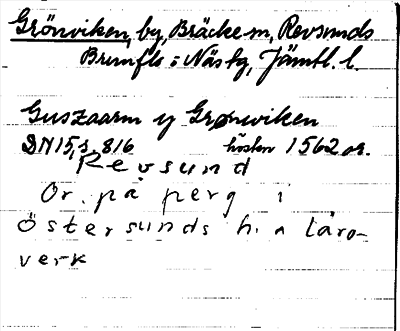 Grönviken, by, Bräcke sn, Revsunds
Brunflo i Näs tg, Jämtl. l.
Guszaarm y Grønwiken
DN 15, s. 816 hösten 1562 or.
Revsund
Or. på perg i
Östersunds h. a läro-
verk